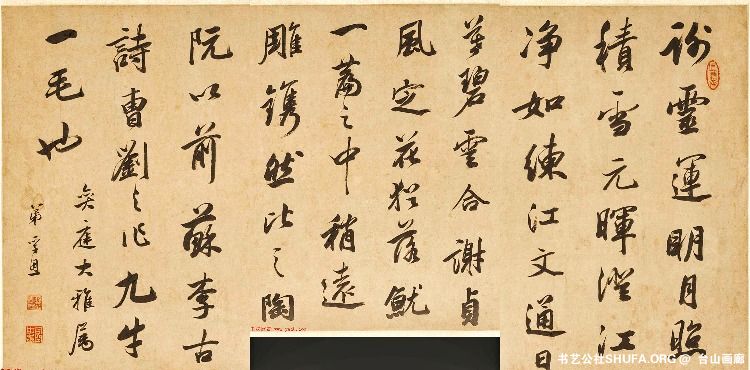 謝靈運明月照
積雪元暉澄江
净如練江文通日
莫碧雲合謝貞
風定花猶落就
一篇之中稍遠
雕鐫然比之陶
阮以前蘇李古
詩曹劉之作九牛
一毛也
庭大雅属
弟孚恩
书艺公社SHUFA.ORG @ 台山画廊